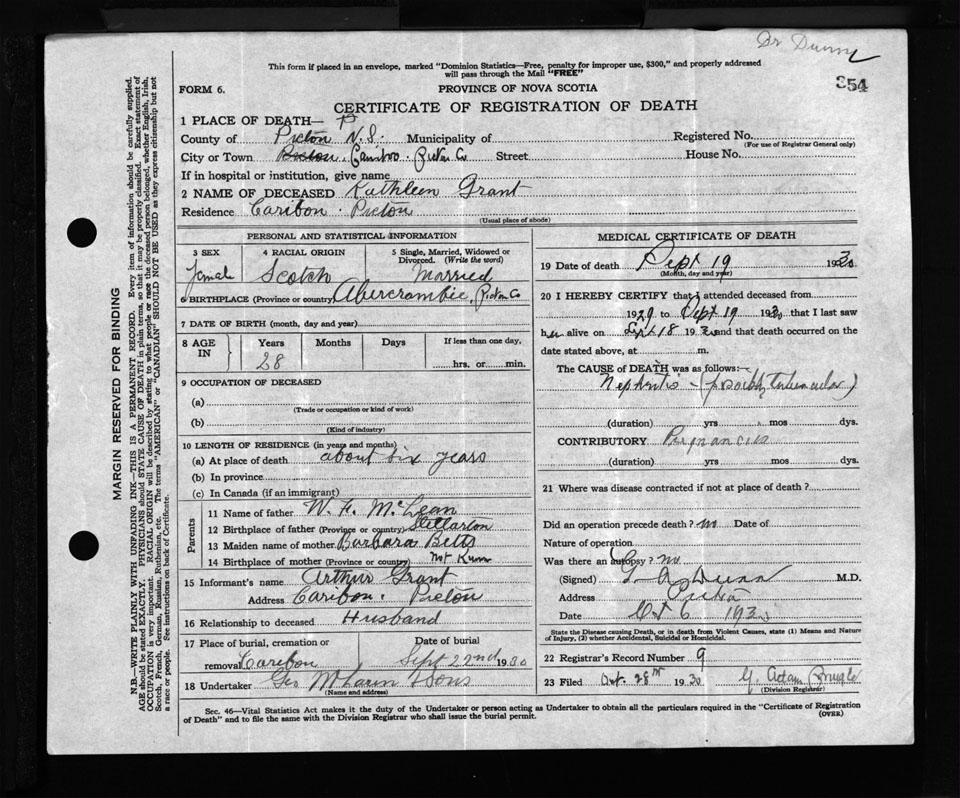 Dr Dunn
354
This form if placed in an envelope, marked "Dominion Statistics—Free, penalty for improper use, $300," and properly addressed
will pass through the Mail "FREE"
FORM 6. PROVINCE OF NOVA SCOTIA
CERTIFICATE OF REGISTRATION OF DEATH
1 PLACE OF DEATH— P
County of Pictou N.S. Municipality of Registered No.
(For use of Registrar General only)
City or Town Pictou. Caribou. Pictou Co Street House No.
If in hospital or institution, give name
2 NAME OF DECEASED Kathleen Grant
Residence Caribou. Pictou
(Usual place of abode)
PERSONAL AND STATISTICAL INFORMATION
3 SEX 4 RACIAL ORIGIN 5 Single, Married, Widowed or
Divorced. (Write the word)
Female Scotch Married
6 BIRTHPLACE (Province or country) Abercrombie, Pictou Co
7 DATE OF BIRTH (month, day and year)
8 AGE IN Years Months Days If less than one day,
28 hrs. or min.
9 OCCUPATION OF DECEASED
(a)
(Trade or occupation or kind of work)
(b)
(Kind of industry)
10 LENGTH OF RESIDENCE (in years and months)
(a) At place of death about six years
(b) In province
(c) In Canada (if an immigrant)
Parents
11 Name of father W. H. McLean
12 Birthplace of father (Province or country) Stellarton
13 Maiden name of mother Barbara Betts
14 Birthplace of mother (Province or country) not Known
15 Informant's name Arthur Grant
Address Caribou. Pictou
16 Relationship to deceased Husband
17 Place of burial, cremation or Date of burial
removal Caribou Sept 22nd 1930
18 Undertaker Geo McLaren & Sons
(Name and address)
MEDICAL CERTIFICATE OF DEATH
19 Date of death Sept 19 1930
(Month, day and year)
20 I HEREBY CERTIFY that I attended deceased from
1929 to Sept 19 1930 that I last saw
her alive on Sept 18 1930 and that death occurred on the
date stated above, at m.
The CAUSE of DEATH was as follows:—
Nephritis — (possibly tubercular)
(duration) yrs mos dys.
CONTRIBUTORY Pregnancies
(duration) yrs mos dys.
21 Where was disease contracted if not at place of death?
Did an operation precede death? no Date of
Nature of operation
Was there an autopsy? no
(Signed) Dunn M.D.
Address Pictou
Date Oct 6 1930
State the Disease causing Death, or in death from Violent Causes, state (1) Means and Nature
of Injury, (2) whether Accidental, Suicidal or Homicidal.
22 Registrar's Record Number 9
23 Filed Oct. 28th 1930 Y. Adam
(Division Registrar)
Sec. 46—Vital Statistics Act makes it the duty of the Undertaker or person acting as Undertaker to obtain all the particulars required in the "Certificate of Registration
of Death" and to file the same with the Division Registrar who shall issue the burial permit. (OVER)
MARGIN RESERVED FOR BINDING
N.B.—WRITE PLAINLY WITH UNFADING INK—THIS IS A PERMANENT RECORD. Every item of information should be carefully supplied.
AGE should be stated EXACTLY. PHYSICIANS should STATE CAUSE OF DEATH in plain terms, so that it may be properly classified. Exact statement of
OCCUPATION is very important. RACIAL ORIGIN will be described by stating to what people or race the deceased person belonged, whether English, Irish,
Scotch, French, German, Russian, Ruthenian, etc. The terms "AMERICAN" or "CANADIAN" SHOULD NOT BE USED as they express citizenship but not
a race or people. See instructions on back of Certificate.